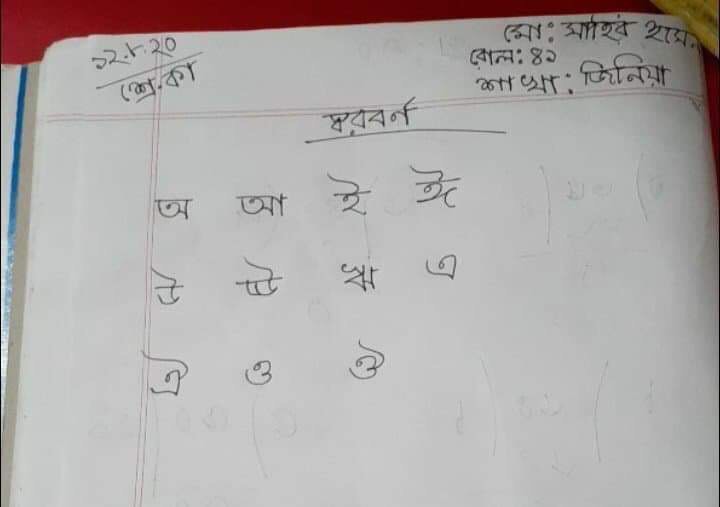 ১২.৮.২০
শ্রে.কা
মো: মাহির হাসে
রোল: ৪২
শাখা: জিনিয়া
স্বরবর্ন
অ আ ই ঈ
উ ঊ ঋ এ
ঐ ও ঔ